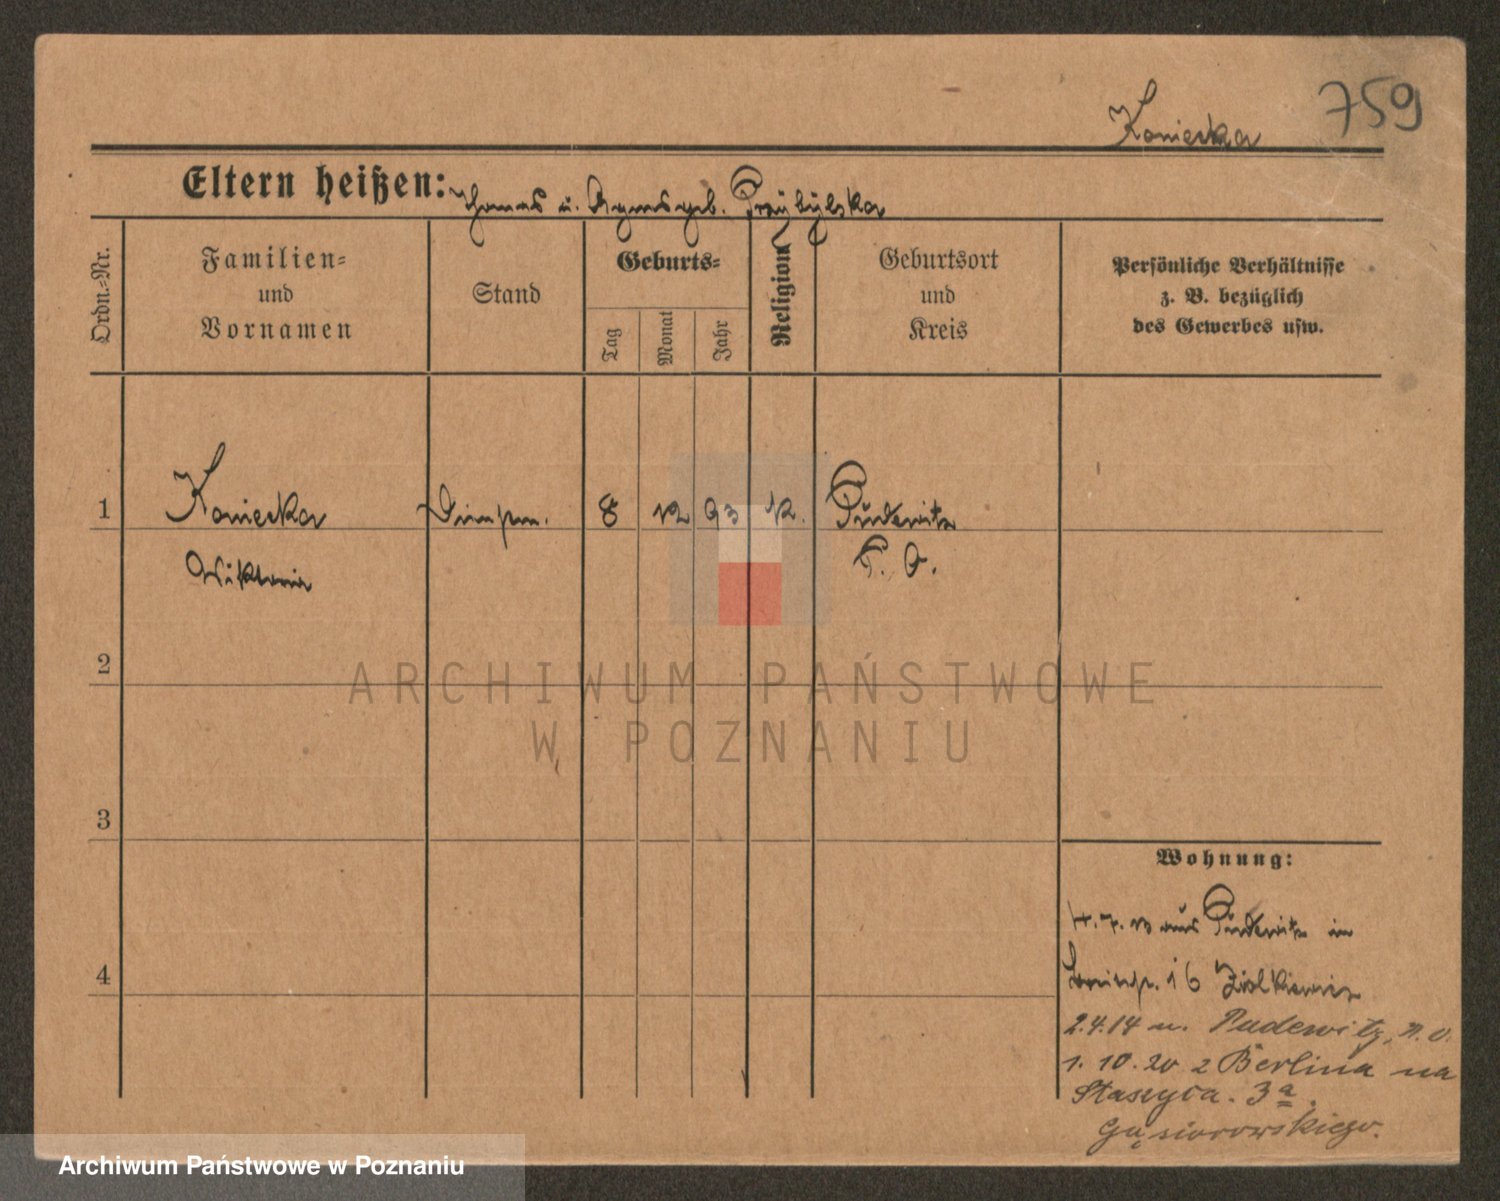 759
Koniecka
Eltern heißen: Thomas u. Agnes geb. Przybylska
Ordn.-Nr.
Familien-
und
Vornamen
Stand
Geburts-
Tag
Monat
Jahr
Religion
Geburtsort
und
Kreis
Persönliche Verhältnisse
z. B. bezüglich
des Gewerbes usw.
1 Koniecka 8 12 93 K. Pudewitz
Wiktoria P. O.
2
3
4
Wohnung:
aus Pudewitz in
16
2.4.14 n. Pudewitz, P. O.
1. 10. 20 z Berlina na
Staszyca. 3a.
Gąsiorowskiego.
ARCHIWUM PAŃSTWOWE
W POZNANIU
Archiwum Państwowe w Poznaniu